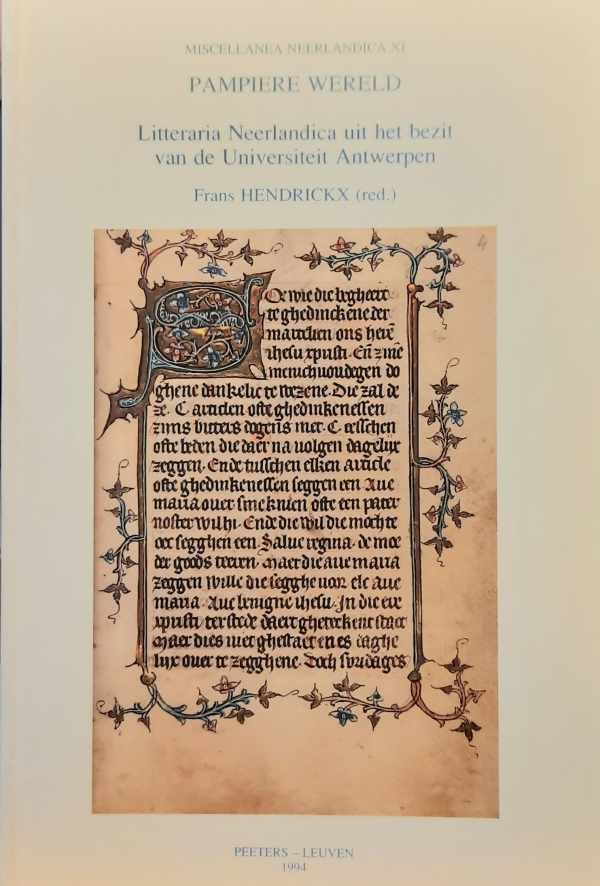 MISCELLANEA NEERLANDICA XI
PAMPIERE WERELD
Litteraria Neerlandica uit het bezit
van de Universiteit Antwerpen
Frans HENDRICKX (red.)
4
So wie die begheert
te ghedinckene der
martelien ons here
ihesu xpristi. En zine
menichvoudegen do
ghene dankelic te wezene. Die zal de
ze. C. articlen ofte ghedinkenessen
zijns bitters dogens met. C. eesschen
ofte beden die daer na volgen dagelijx
zeggen. Ende tusschen elken article
ofte ghedinkenessen seggen een Aue
maria ouer sine knien ofte een pater
noster wil hi. Ende die wil die mochte
oec segghen een Salue regina. de moe
der goods teeren. Maer die aue maria
zeggen wille die segghe uoor elc aue
maria. Aue benigne ihesu. In die ere
xpristi. ter stede daert gheteekent staet
Maer dies niet ghestaet en es daghe
lijx ouer te zegghene. Doch svridages
PEETERS – LEUVEN
1994